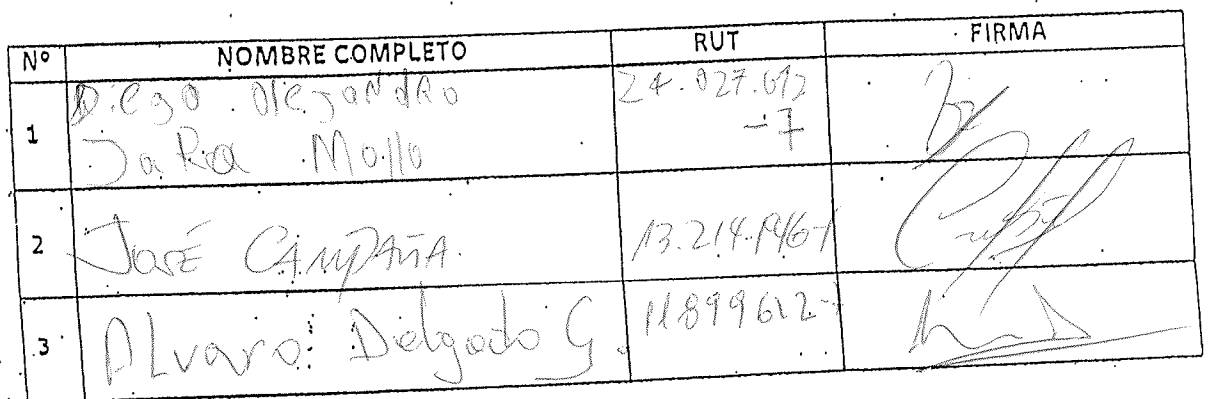 Nº NOMBRE COMPLETO RUT FIRMA
1 Diego Alejandro 24.027.612
Jaña Mollo -7
2 JOSÉ CAMPAÑA. 13.214.946-1
3 Alvaro Delgado G. 11899612-